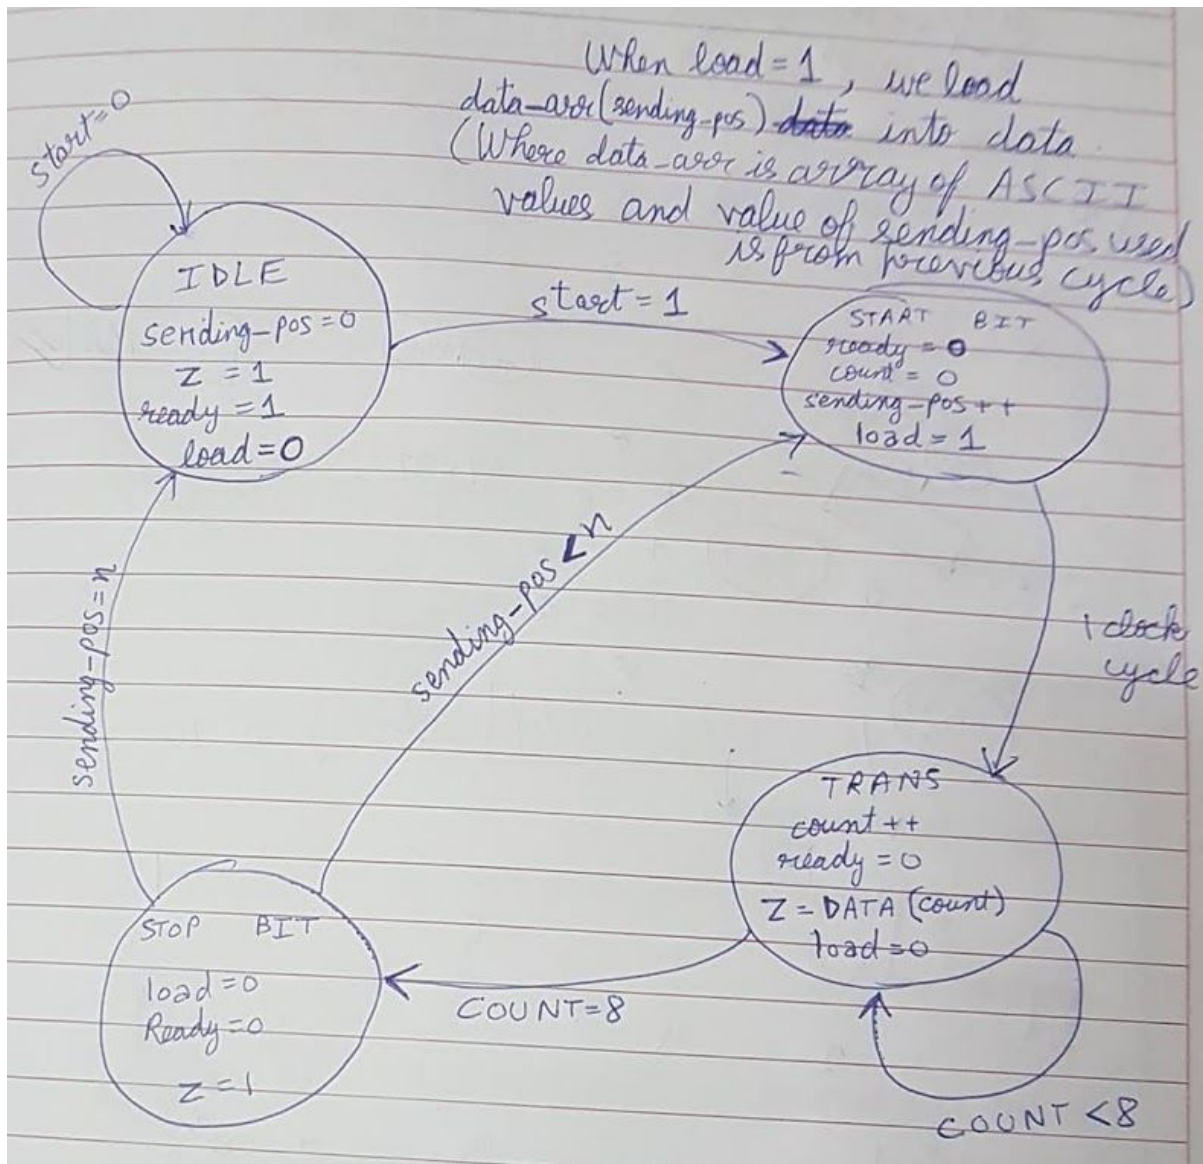 When load = 1 , we load
data-arr(sending-pos) data into data
(Where data-arr is array of ASCII
values and value of sending-pos used
is from previous cycle)
start=0
IDLE
sending-pos=0
Z = 1
ready = 1
load=0
start = 1
START BIT
ready = 0
count = 0
sending-pos++
load = 1
sending-pos=n
sending-pos<n
1 clock
cycle
TRANS
count++
ready = 0
Z = DATA (count)
load=0
STOP BIT
load=0
Ready=0
Z=1
COUNT=8
COUNT<8